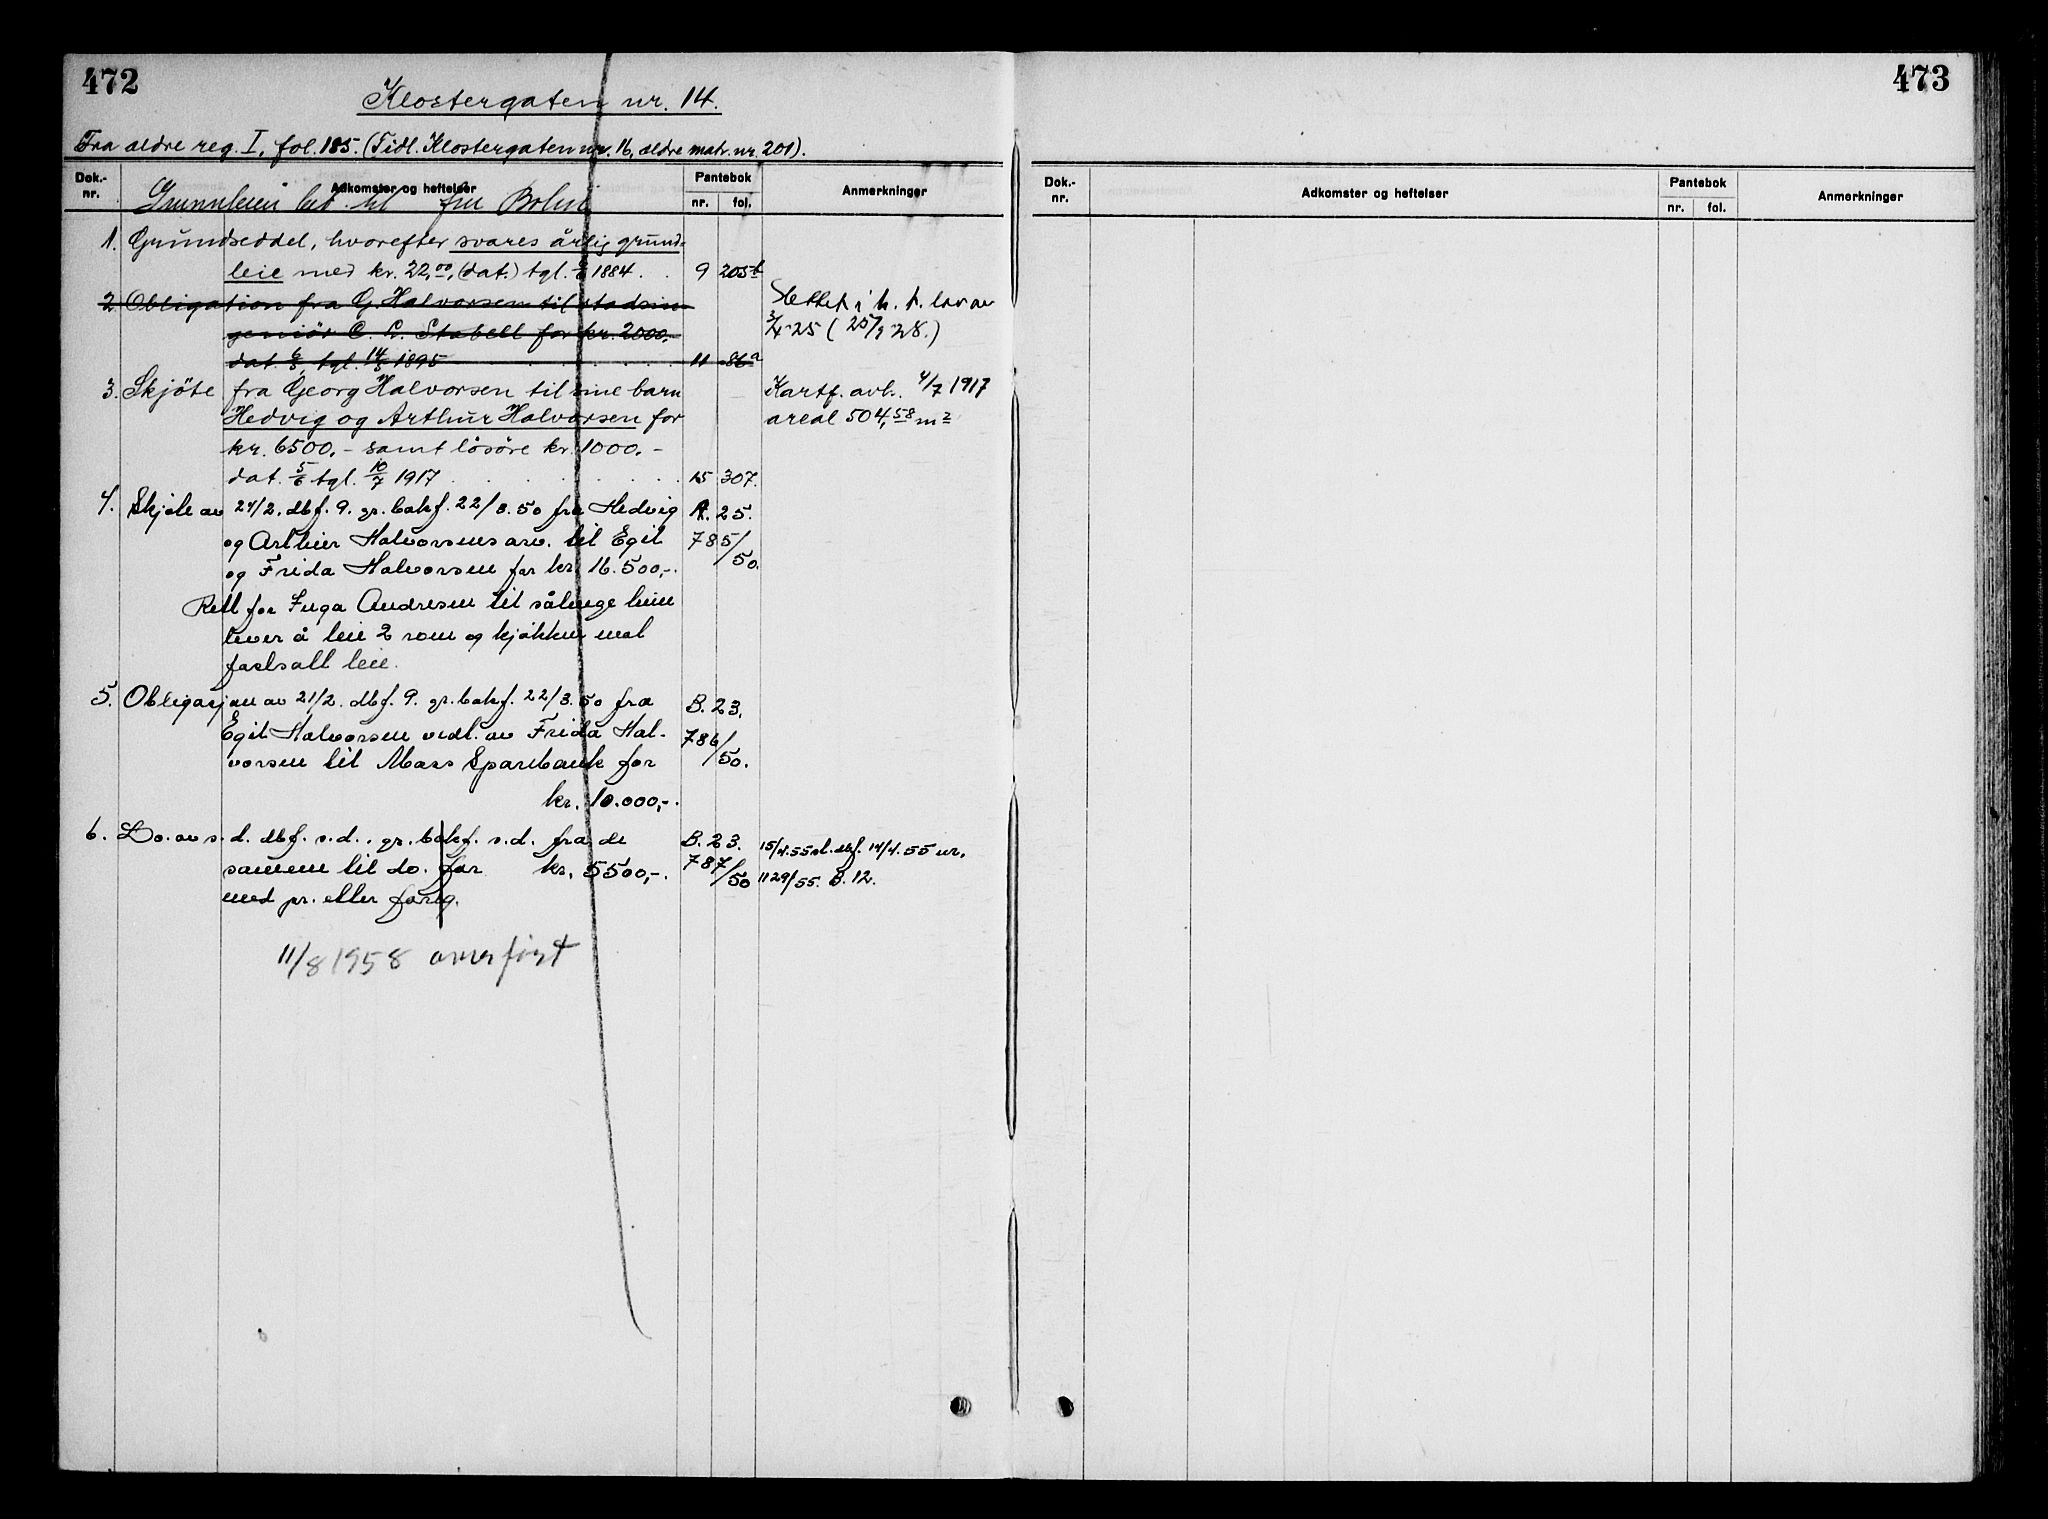 472
Klostergaten nr. 14.
Fra ældre reg. I, fol. 185. (Tidl. Klostergaten nr. 16, ældre matr. nr. 201).
Dok.-nr. Adkomster og heftelser Pantebok nr. fol. Anmerkninger
Grunnleien til fru
1. Grundseddel, hvorefter svares årlig grund-
leie med kr. 22,00, (dat.) tgl. 1884. 9 205b
2. Obligation fra G. Halvorsen til stadsin-
geniör C. L. Stabell for kr. 2000.-
dat. tgl. 14/5 1895 11 86a
Slettet i h. t. lov av
3/4 25 (25/9 28.)
3. Skjöte fra Georg Halvorsen til sine barn
Hedvig og Arthur Halvorsen for
kr. 6500.- samt lösöre kr. 1000.-
dat. 5/6 tgl. 10/7 1917 15 307.
Kartf. avh. 4/7 1917
areal 504,58 m2
4. Skjøte av 21/2. dbf. 9. gr. bokf. 22/3.50 fra Hedvig A. 25.
og Arthur Halvorsens arv. til Egil 785/
og Frida Halvorsen for kr. 16.500,-. 50.
Rett for Inga Andresen til sålenge hun
lever å leie 2 rom og kjøkken mot
fastsatt leie.
5. Obligasjon av 21/2. dbf. 9. gr. bokf. 22/3.50 fra B. 23.
Egil Halvorsen vedt. av Frida Hal- 786/
vorsen til Moss Sparebank for 50.
kr. 10.000,-.
6. Do. av s.d. dbf. s.d., gr. bokf. s.d. fra de B. 23. 15/4.55 sl. dbf. 14/4.55 nr.
samme til do. for kr. 5500,-. 787/50 1129/55. B. 12.
med pr. etter forrig.
11/8 1958 overført
473
Dok.-nr. Adkomster og heftelser Pantebok nr. fol. Anmerkninger